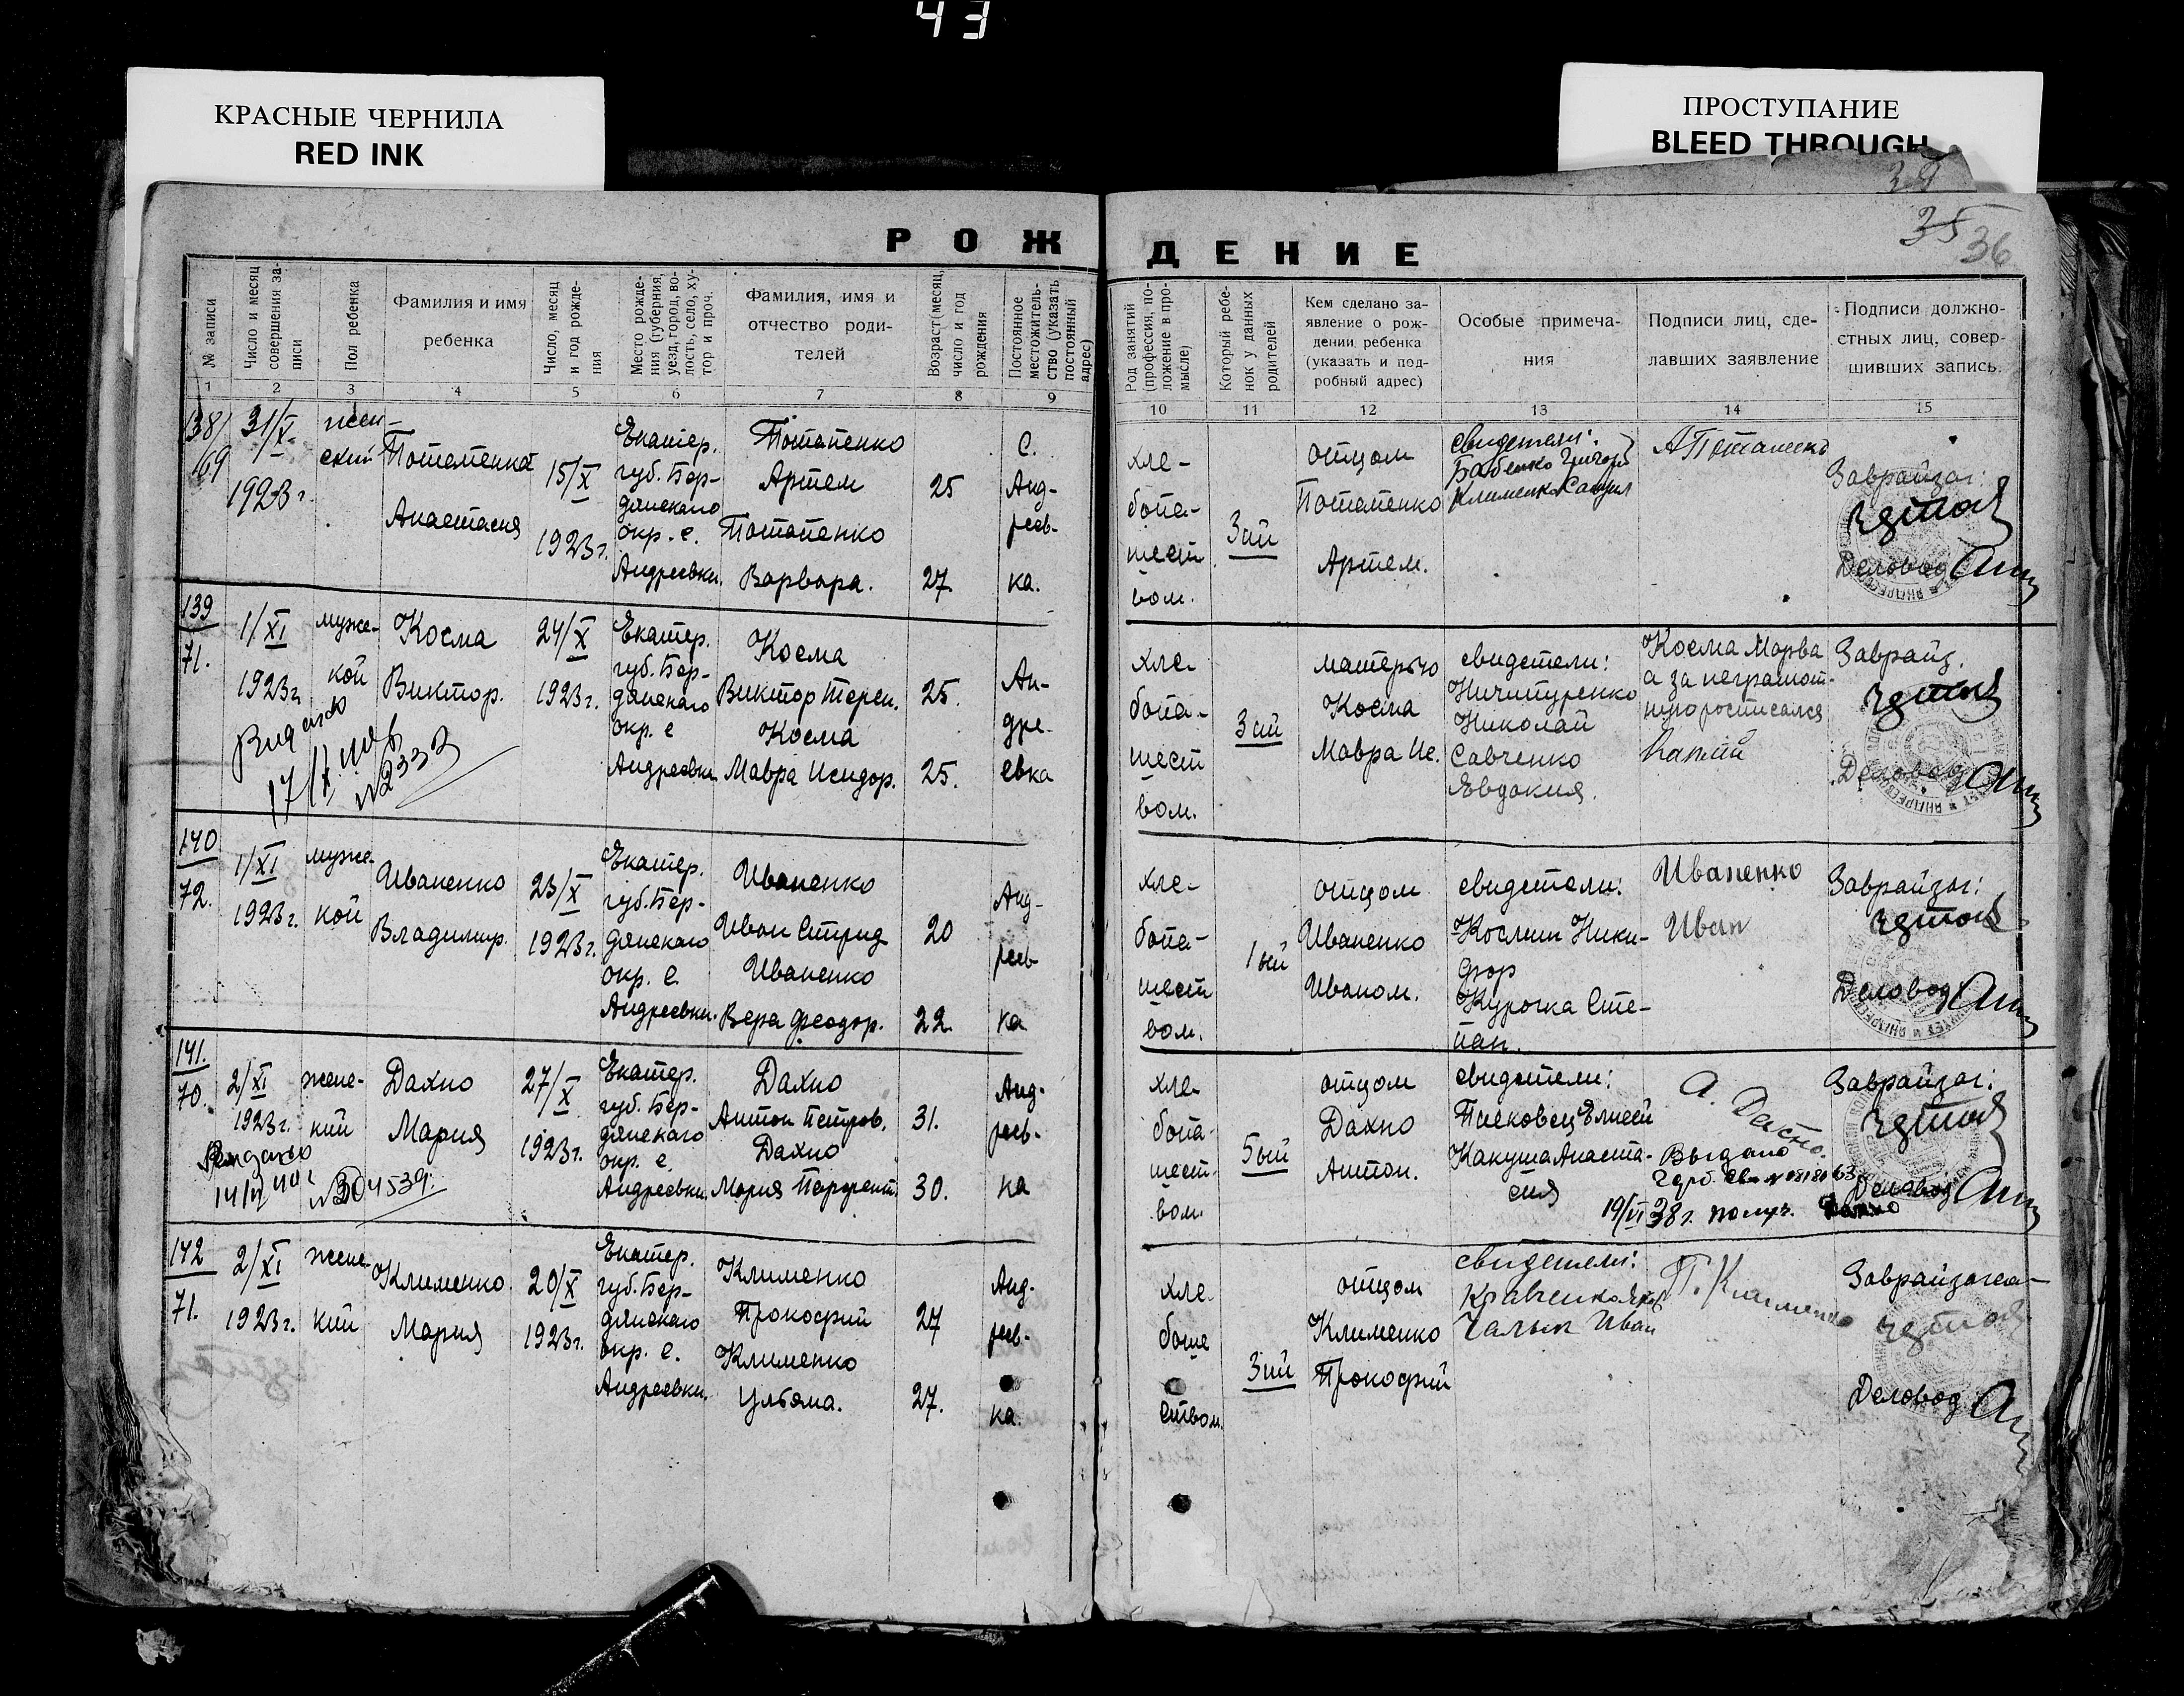 43
КРАСНЫЕ ЧЕРНИЛА
RED INK
ПРОСТУПАНИЕ
BLEED THROUGH
35
36
РОЖДЕНИЕ
№ записи
Число и месяц совершения записи
Пол ребенка
Фамилия и имя ребенка
Число, месяц и год рождения
Место рождения (губерния, уезд, город, волость, село, хутор и проч.
Фамилия, имя и отчество родителей
Возраст (месяц, число и год рождения
Постоянное местожительство (указать постоянный адрес)
Род занятий (профессия, положение в промысле)
Который ребенок у данных родителей
Кем сделано заявление о рождении ребенка (указать и подробный адрес)
Особые примечания
Подписи лиц, сделавших заявление
Подписи должностных лиц, совершивших запись.
1 2 3 4 5 6 7 8 9 10 11 12 13 14 15
138/169
31/X 1923 г.
женский
Потапенко Анастасия
15/X 1923 г.
Екатер. губ. Бердянского окр. с. Андреевки.
Потапенко Артем
25
Потапенко Варвара.
27.
с. Андреевка.
хлебопашеством.
3ий
отцом Потапенко Артем.
свидетели: Бабенко Григорий
Клименко
А Потапенко
Заврайзаг:
Деловод
139
71.
1/XI 1923 г.
мужской
Косма Виктор.
24/X 1923 г.
Екатер. губ. Бердянского окр. с Андреевки
Косма Виктор Терен.
25.
Косма Мавра Исидор.
25.
Андреевка
хлебопашеством.
3ий
матерью Косма Мавра Ис.
свидетели: Ничипуренко Николай
Савченко Евдокия.
Косма Мавра а за неграмотную росписался
Заврайз.
Деловод
№2333
140
72.
1/XI 1923 г.
мужской
Иваненко Владимир.
23/X 1923 г.
Екатер. губ. Бердянского окр. с. Андреевки.
Иваненко Иван
20
Иваненко Вера Феодор.
22.
Андреевка
хлебопашеством.
1ый
отцом Иваненко Иваном.
свидетели: Космин Никифор
Курочка Степан.
Иваненко Иван
Заврайзаг:
Деловод
141.
70.
2/XI 1923 г.
женский
Дахно Мария
27/X 1923 г.
Екатер. губ. Бердянского окр. с. Андреевки.
Дахно Антон Петров.
31.
Дахно Мария Парфент.
30.
Андреевка
хлебопашеством.
5ый
отцом Дахно Антон.
свидетели: Елисей
Какуша Анастасия
А. Дахно.
Выдано
19/VI 38 г. получ.
Заврайзаг:
Деловод
142
71.
2/XI 1923 г.
женский
Клименко Мария
20/X 1923 г.
Екатер. губ. Бердянского окр. с. Андреевки.
Клименко Прокофий
27
Клименко Ульяна.
27.
Андреевка.
хлебопашеством.
3ий
отцом Клименко Прокофий
свидетели: Кравченко Яков
Чалык Иван
П. Клименко
Деловод